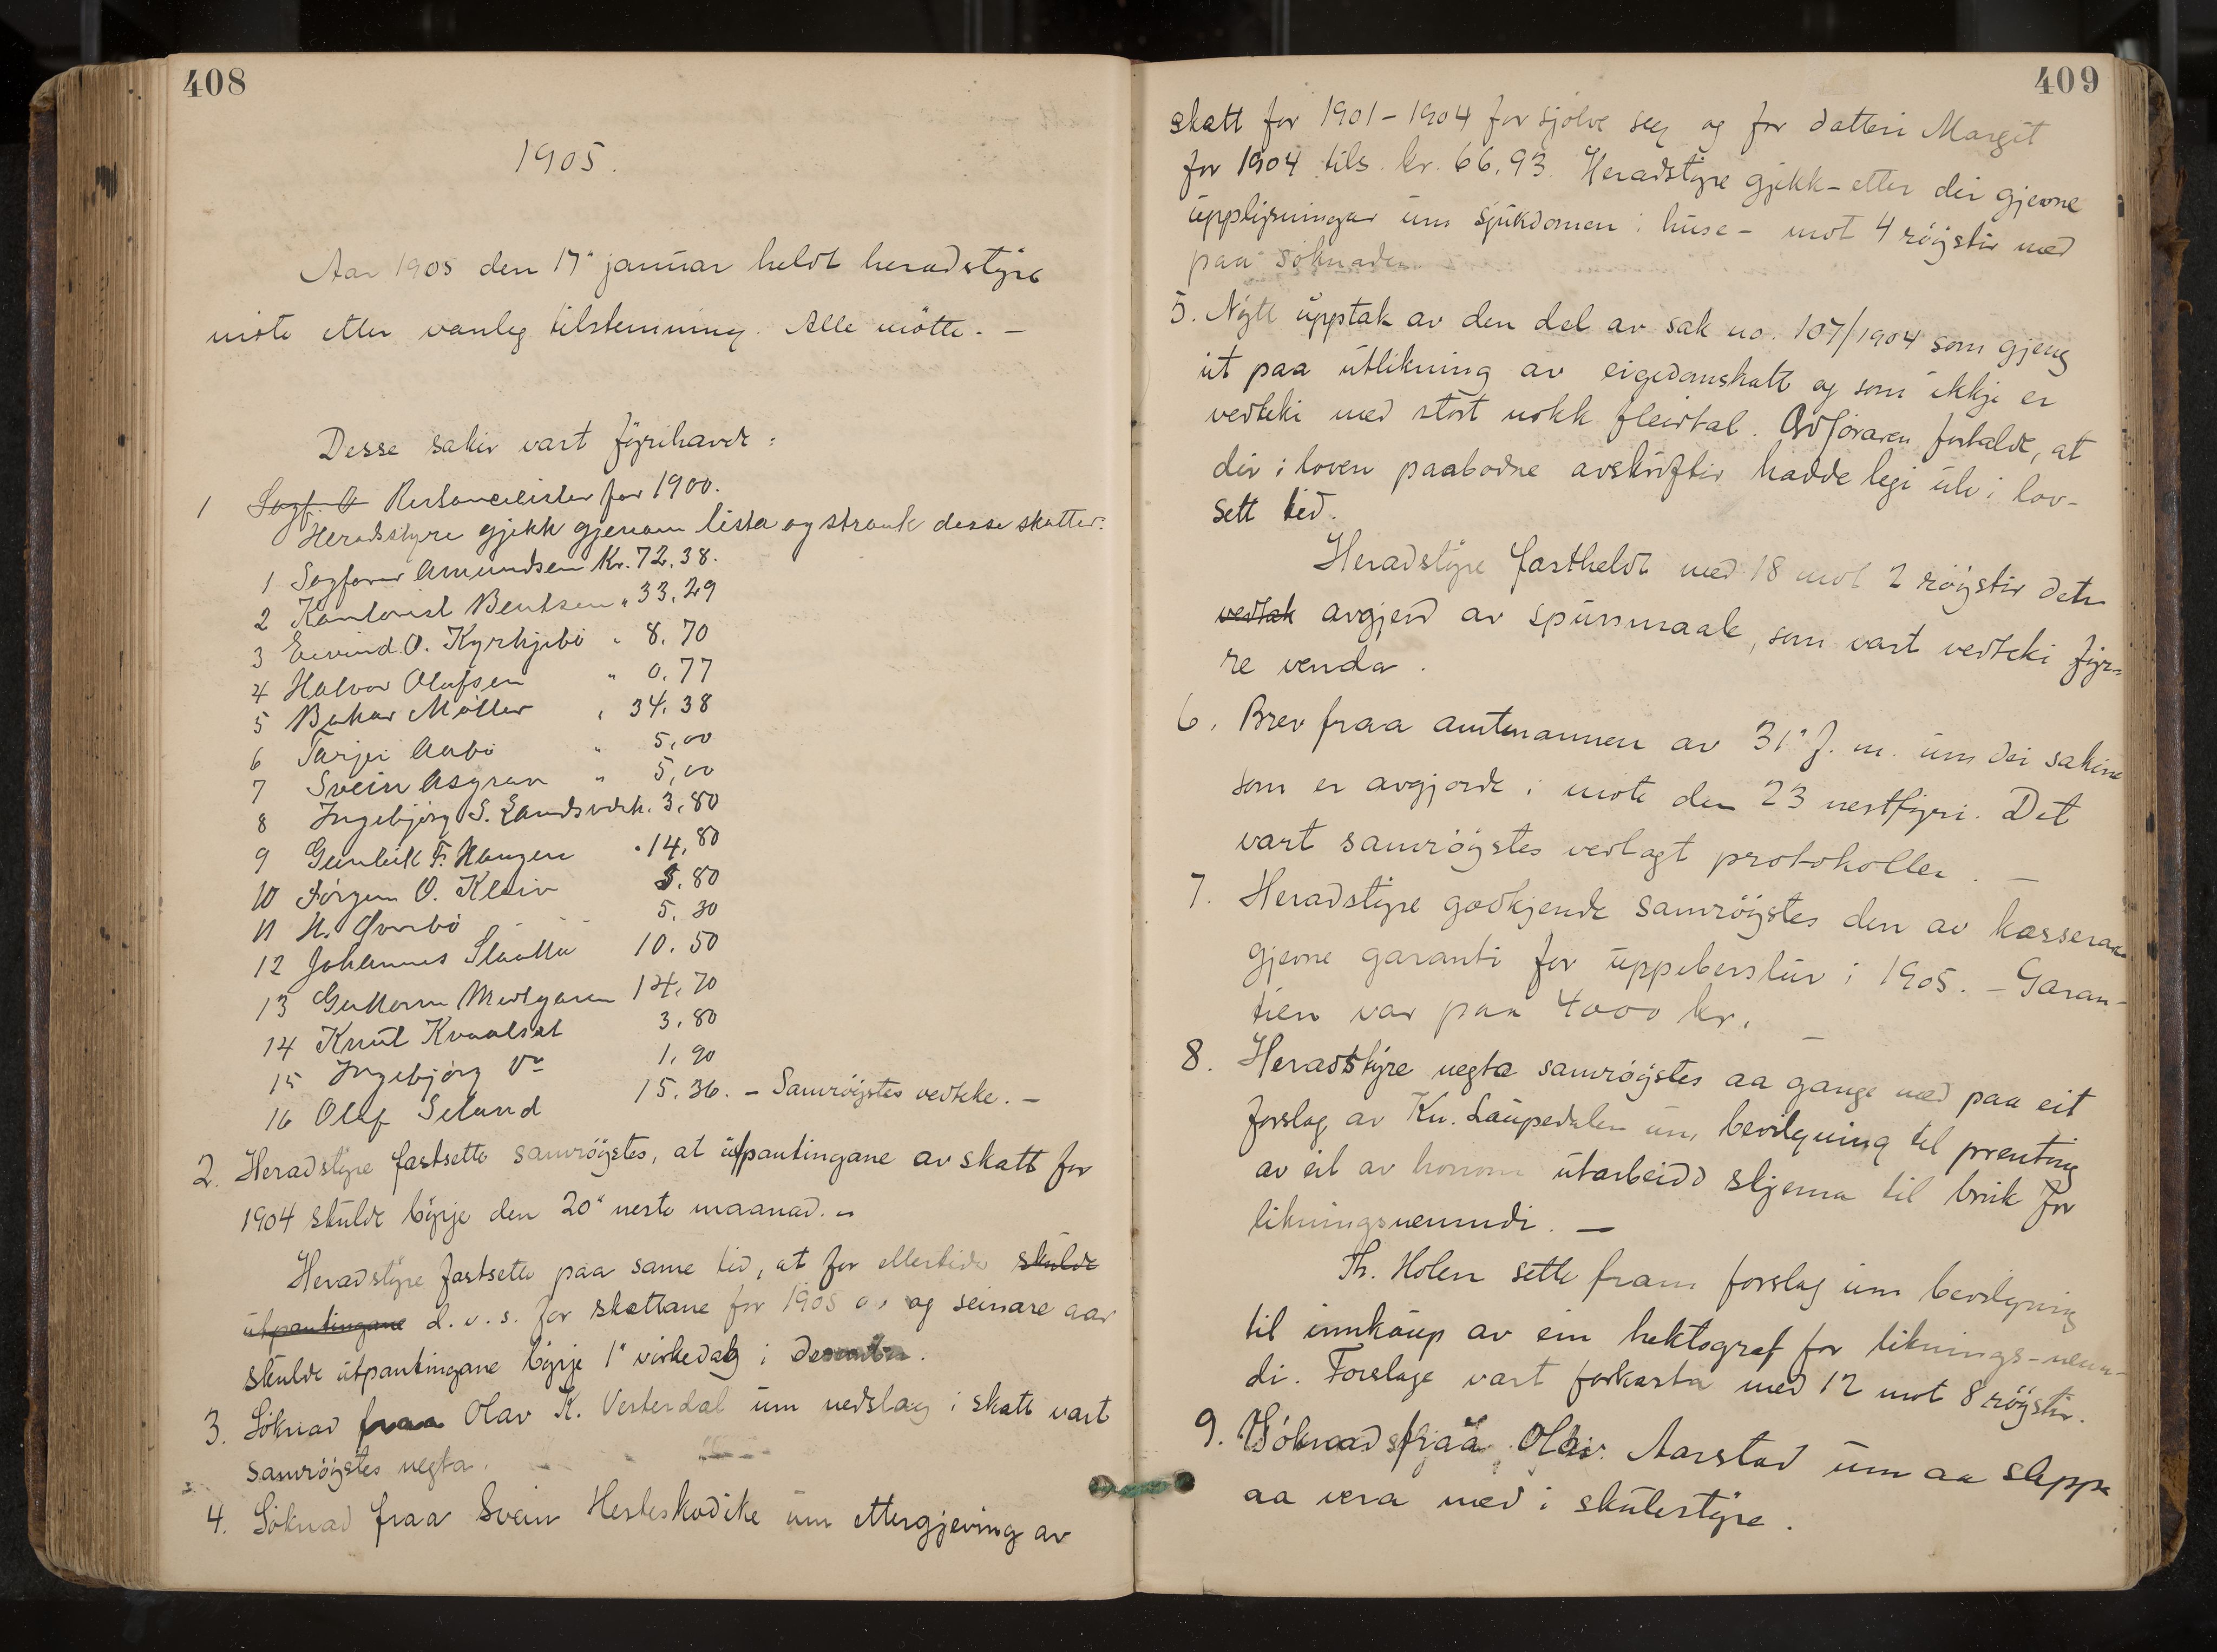 408
1905.
Aar 1905 den 17" januar heldt heradstyre
møte etter vanleg tilstemning. Alle møtte. —
Desse sakir vart fyrihavde:
1 Sagf. A Restancelister for 1900.
Heradstyre gjekk gjenom lista og strauk desse skatter:
1 Sagførar Amundsen Kr. 72,38.
2 Kontorist Bentsen " 33,29
3 Eivind O. Kyrkjebø " 8,70
4 Halvor Olafsen " 0,77
5 Bakar Møller " 34,38
6 Tarjei Aabø " 5,00
7 Svein Asgran " 5,00
8 Ingebjørg S. Landsverk. 3,80
9 Gunleik F. Haugen " 14,80
10 Jørgen O. Kleiv 5.80
11 H. Øvrebø 5.30
12 Johannes Slaatta 10.50
13 Guttorm Medgaren 14,70
14 Knut Kvaalset 3.80
15 Ingebjørg Do 1,90
16 Olaf Seland 15.36. — Samrøystes vedteke. —
2. Heradstyre fastsette samrøystes, at utpantingane av skatt for
1904 skulde byrje den 20" neste maanad. —
Heradstyre fastsette paa same tid, at for ettertida skulde
utpantingane d.v.s. for skattane for 1905 og seinare aar
skulde utpantingane byrje 1" virkedag i desember.
3. Søknad fraa Olav K. Vesterdal um nedslag i skatt vart
samrøystes negta.
4. Søknad fraa Svein Hesteskodike um ettergjeving av
409
skatt for 1901–1904 for sjølve seg og for datteri Margit
for 1904 tils. kr. 66,93. Heradstyre gjekk – etter dei gjevne
upplysningar um sjukdomen i huse – mot 4 røyster med
paa søknaden.
5. Nytt upptak av den del av sak no. 107/1904 som gjeng
ut paa utlikning av eigedomskatt og som ikkje er
vedteki med stort nokk fleirtal. Ordføraren fortalde, at
dei i loven paabodne avskrifter hadde legi ute i lov-
sett tid.
Heradstyre fastheldt med 18 mot 2 røystir den
vedtak avgjerd av spursmaale, som vart vedteki fyr-
re venda.
6. Brev fraa amtmannen av 31" f. m. um dei sakine
som er avgjorde i møte den 23 nestfyri. Det
vart samrøystes vedlagt protokollen. —
7. Heradstyre godkjende samrøystes den av kasseraren
gjevne garanti for uppeberslur i 1905. – Garan-
tien var paa 4000 kr. —
8. Heradstyre negta samrøystes aa gange med paa eit
forslag av Kn. Laupedalen um bevilgning til prenting
av eit av honom utarbeidd skjema til bruk for
likningsnemndi. —
Th. Holen sette fram forslag um bevilgning
til innkaup av ein hektograf for liknings-nemn-
di. Forslage vart forkasta med 12 mot 8 røystir.
9. Søknad fraa Olav Aarstad um aa sleppe
aa vera med i skulestyre.